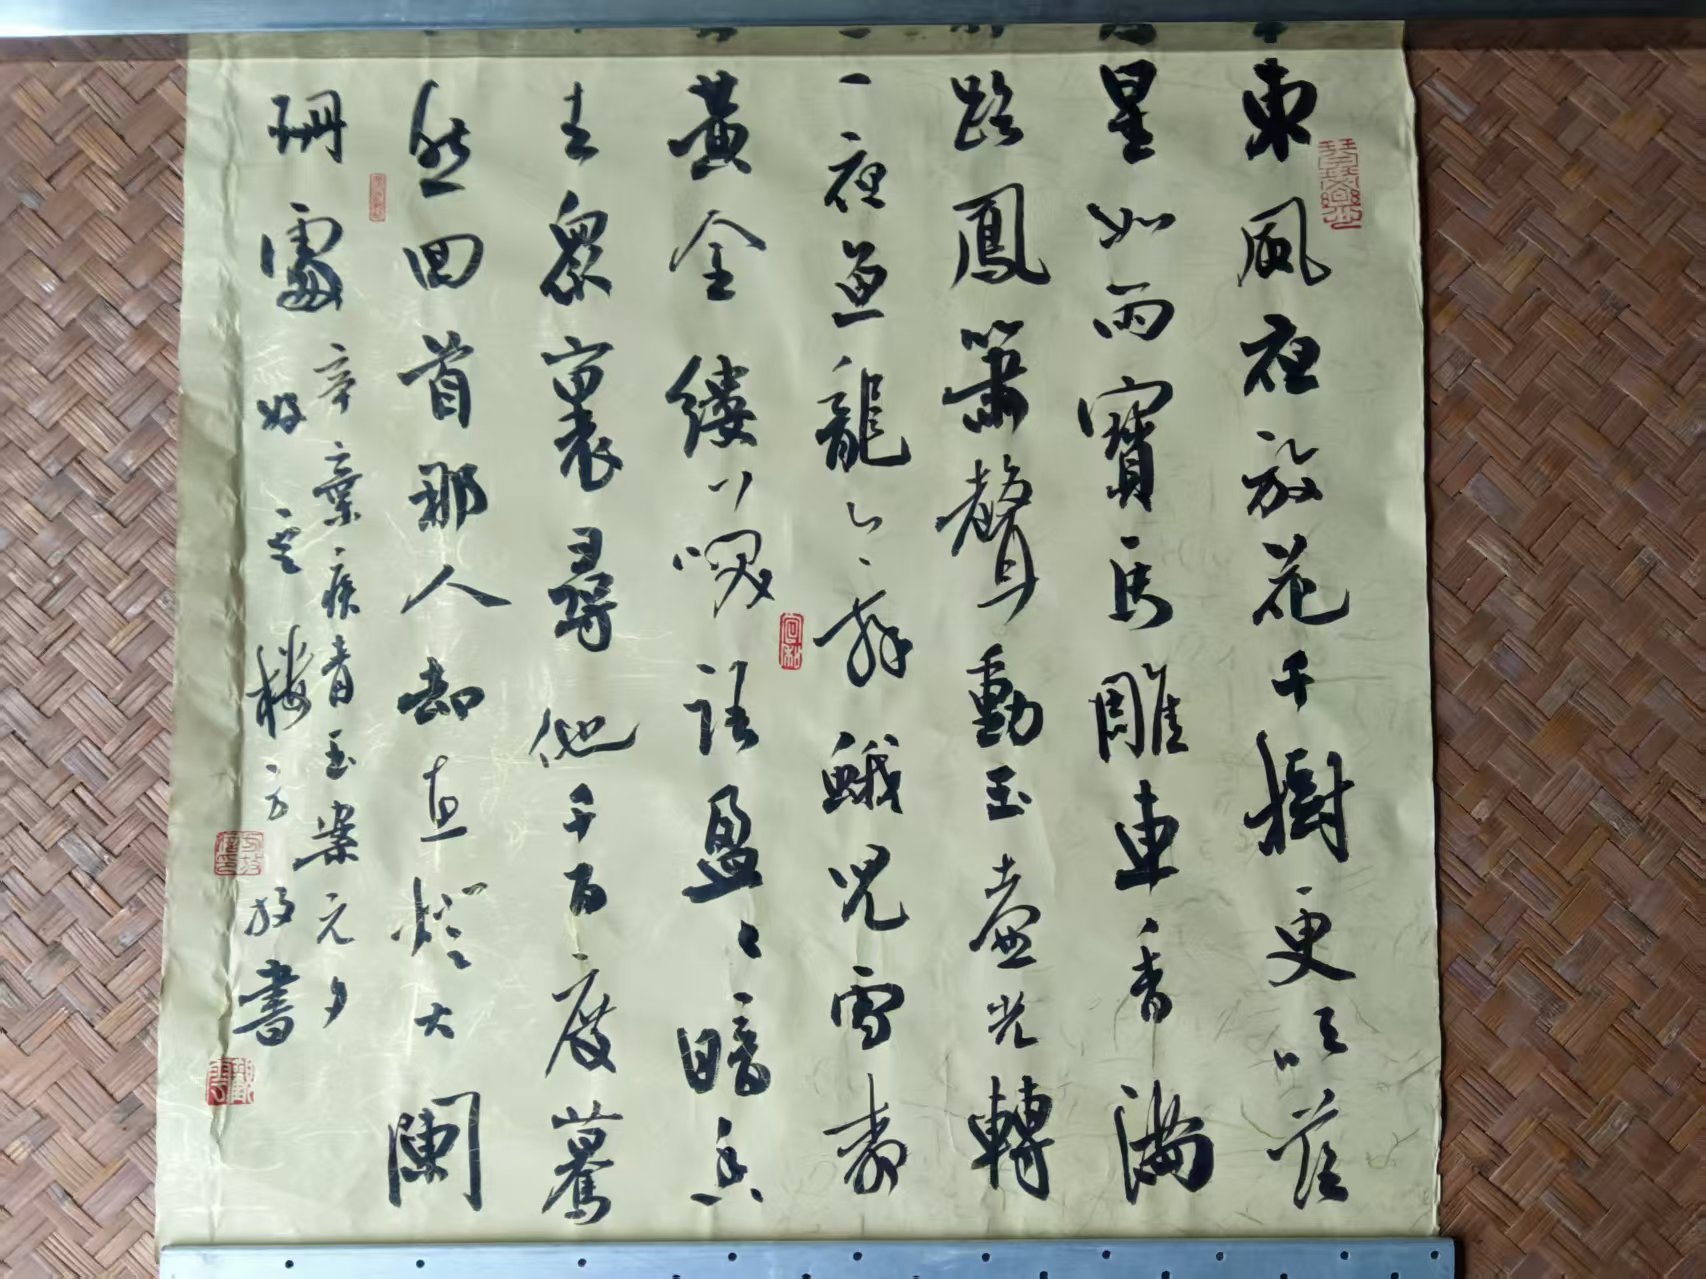 東風夜放花千樹更吹落
星如雨寶馬雕車香滿
路鳳簫聲動玉壺光轉
一夜魚龍舞蛾兒雪柳
黃金縷笑語盈〻暗香
去眾裏尋他千百度驀
然回首那人却在燈火闌
珊處
辛棄疾青玉案元夕
樓方放書
宣和